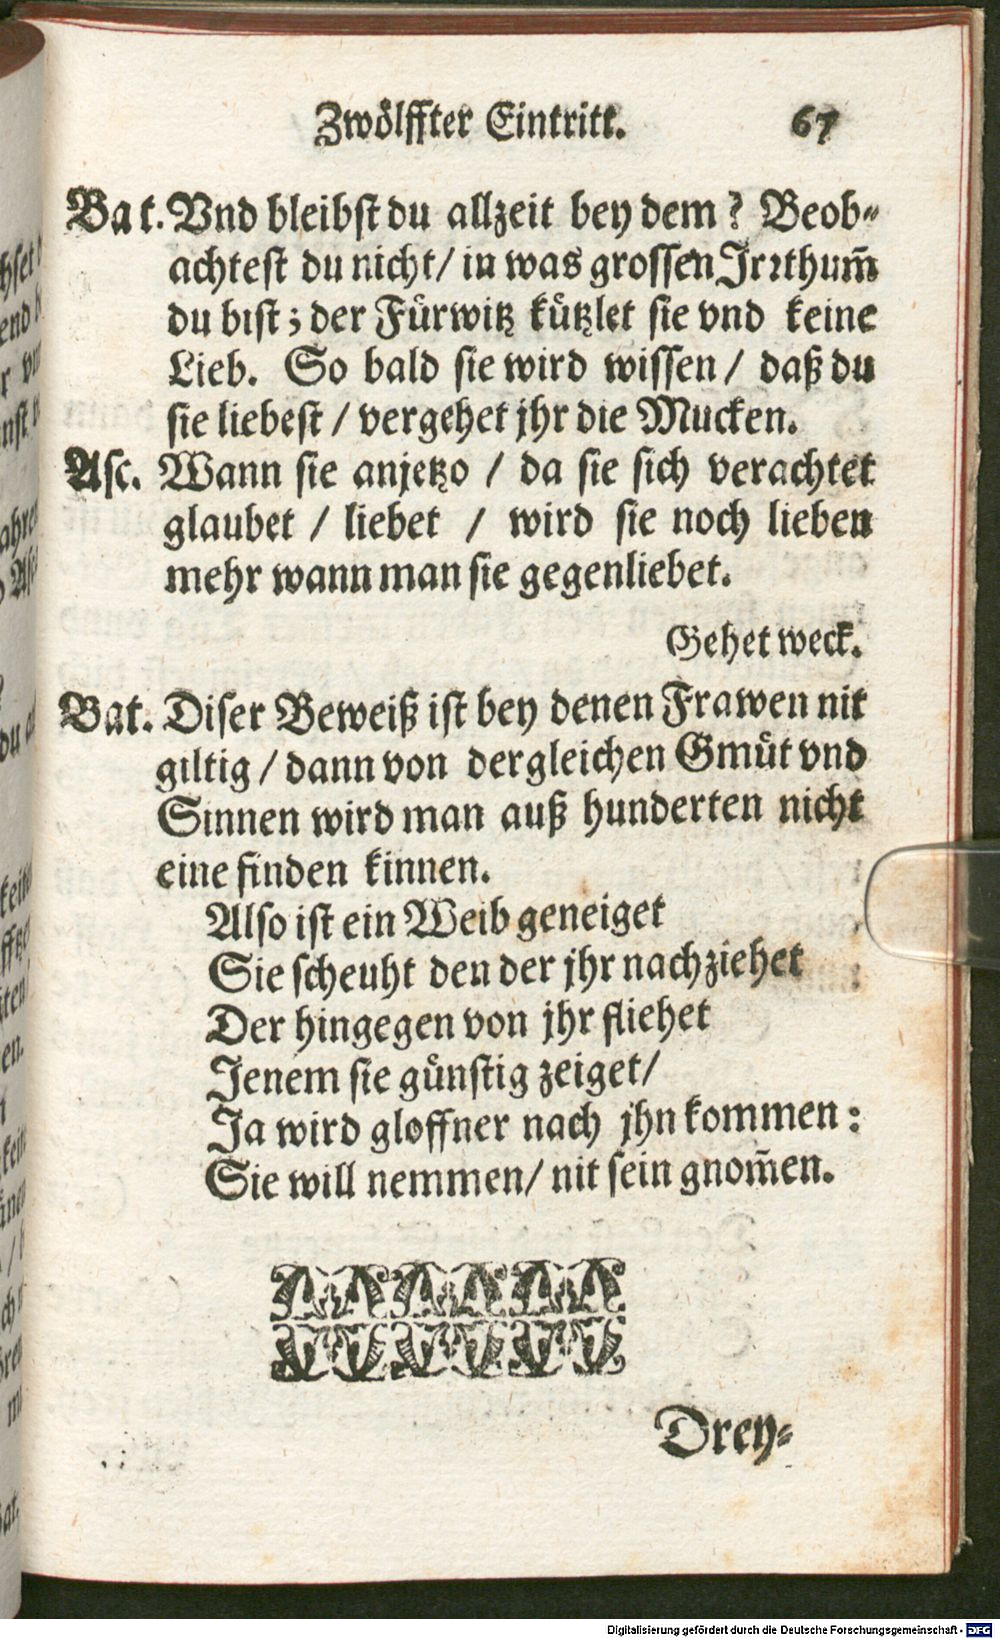 Zwölffter Eintritt. 67
Bat. Vnd bleibst du allzeit bey dem? Beob-
achtest du nicht/ in was grossen Irrthum̃
du bist; der Fürwitz kützlet sie vnd keine
Lieb. So bald sie wird wissen/ daß du
sie liebest/ vergehet jhr die Mucken.
Asc. Wann sie anjetzo/ da sie sich verachtet
glaubet/ liebet/ wird sie noch lieben
mehr wann man sie gegenliebet.
Gehet weck.
Bat. Diser Beweiß ist bey denen Frawen nit
giltig/ dann von dergleichen Gmüt vnd
Sinnen wird man auß hunderten nicht
eine finden kinnen.
Also ist ein Weib geneiget
Sie scheuht den der jhr nachziehet
Der hingegen von jhr fliehet
Jenem sie günstig zeiget/
Ja wird gloffner nach jhn kommen:
Sie will nemmen/ nit sein gnom̃en.
Drey-
Digitalisierung gefördert durch die Deutsche Forschungsgemeinschaft - DFG